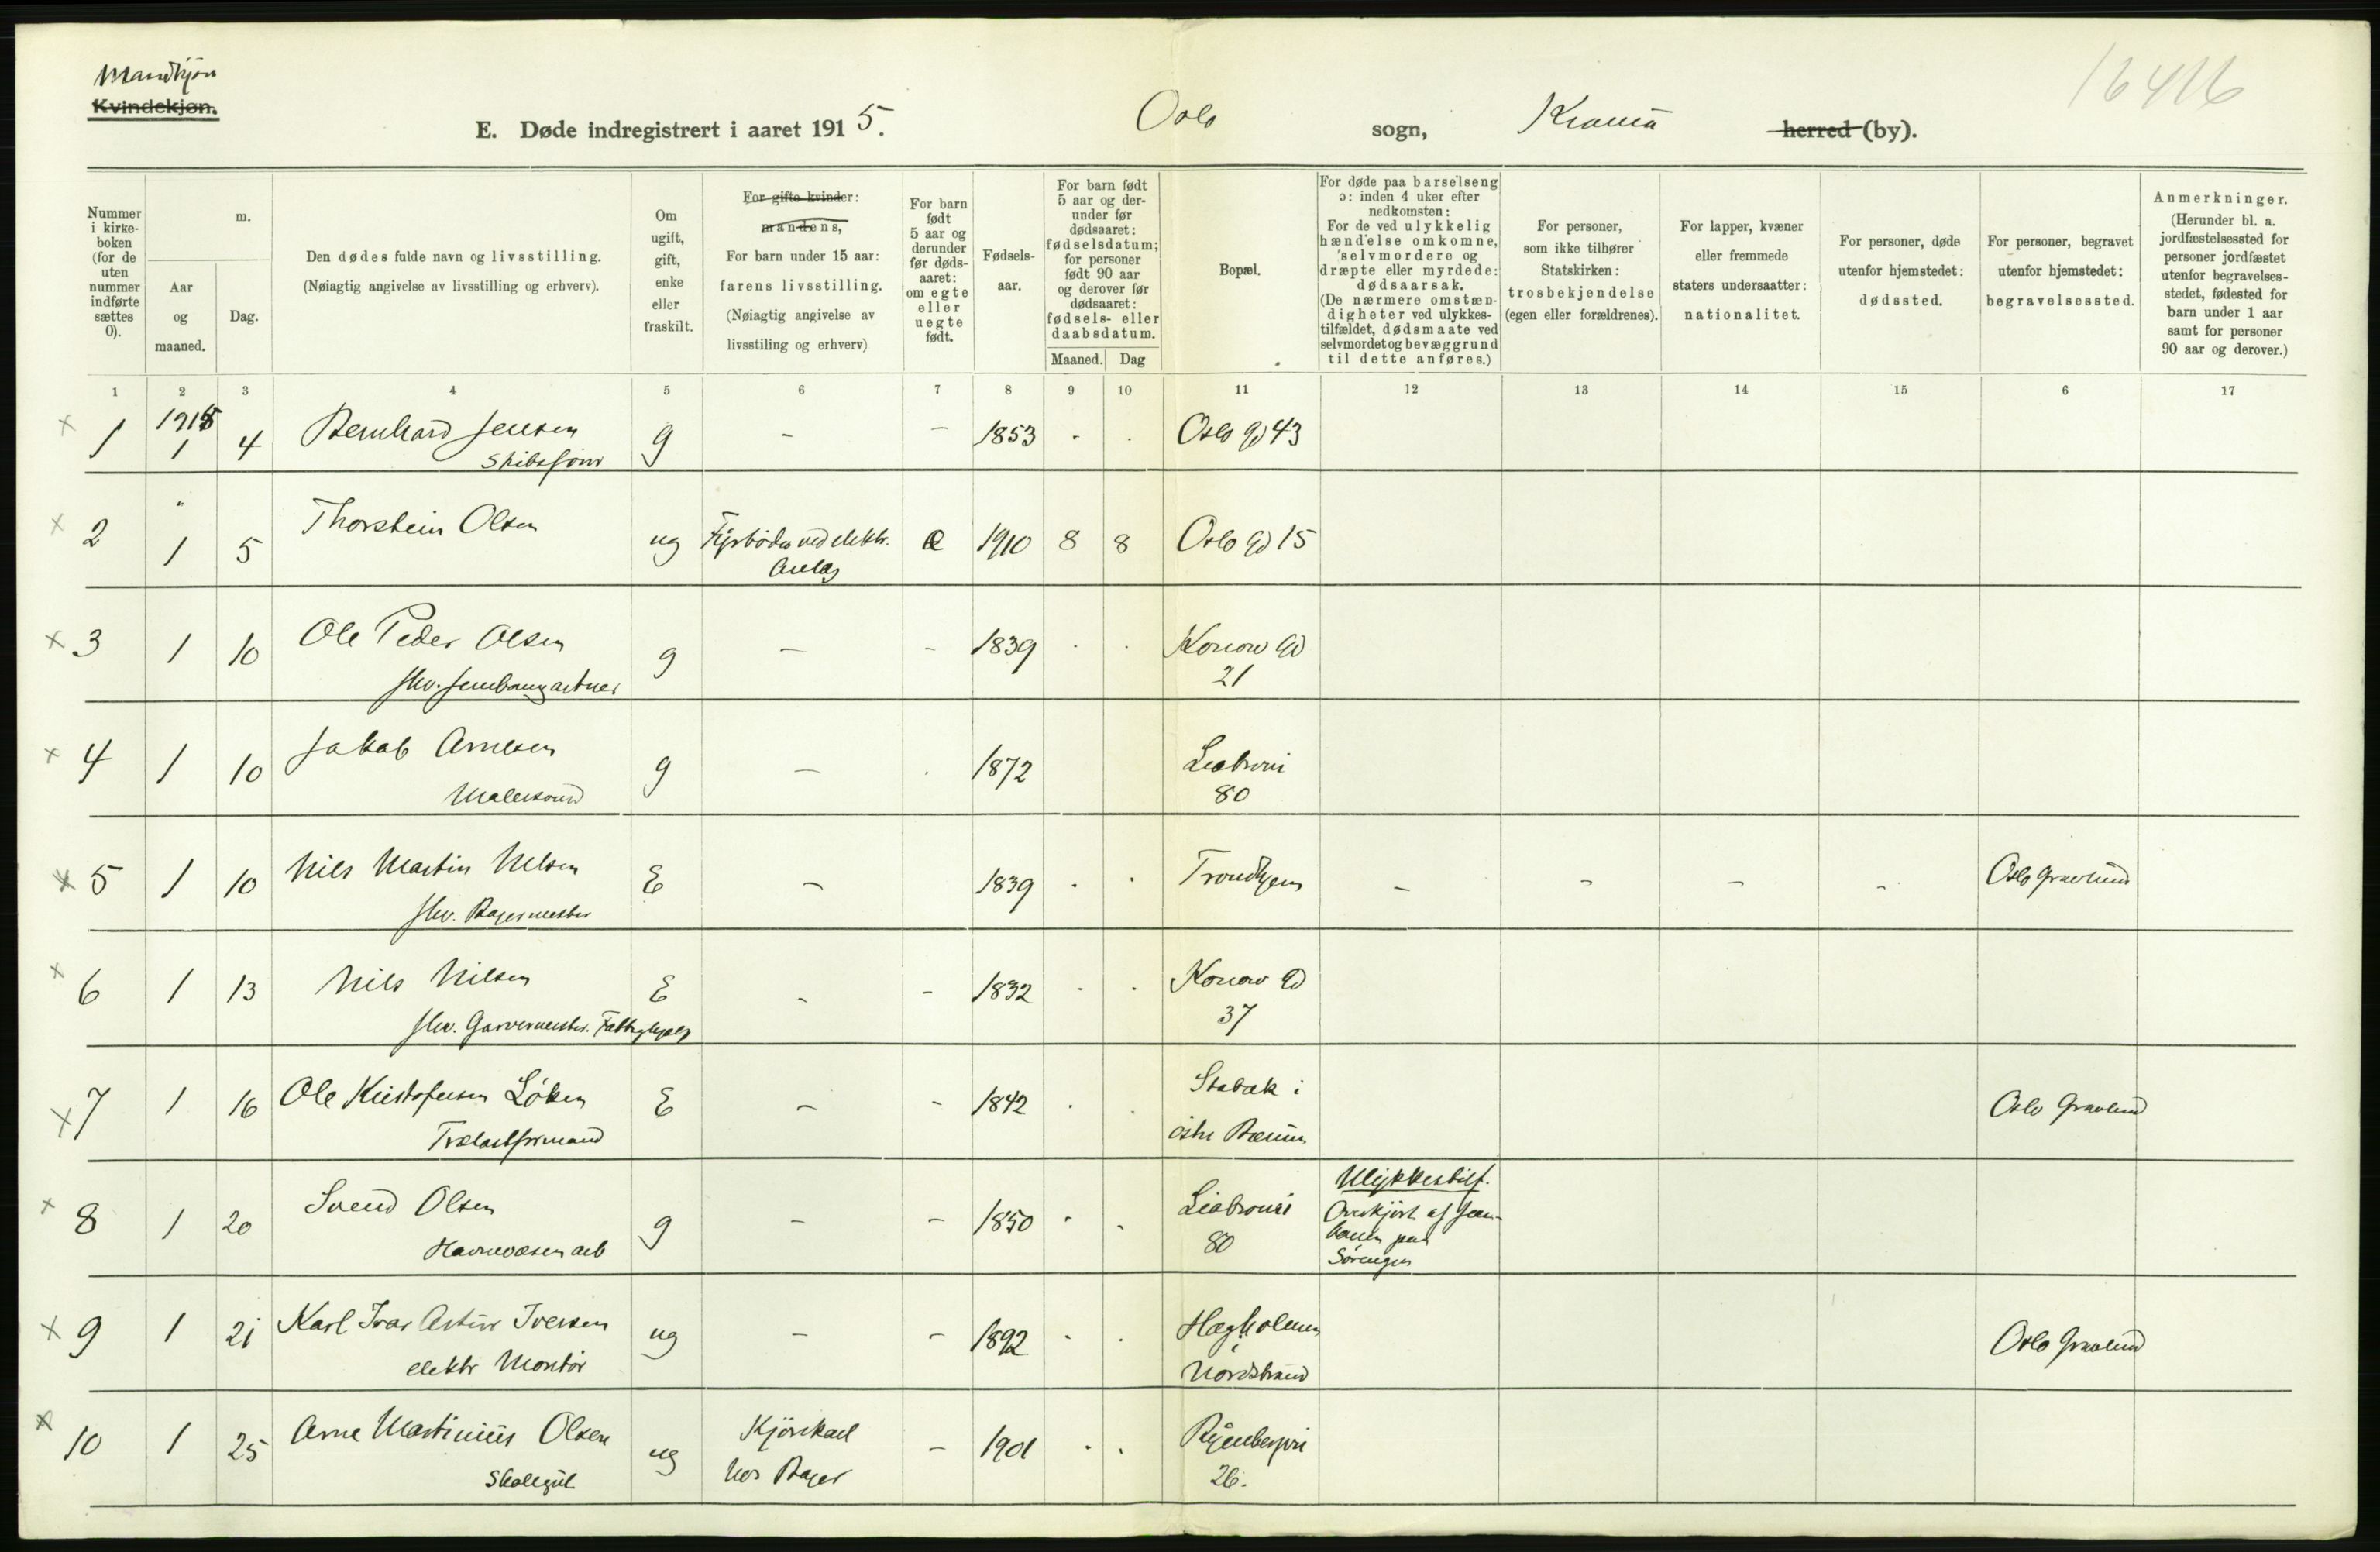 Mandkjøn
Kvindekjøn.
E. Døde indregistrert i aaret 1915.
Oslo sogn, Krania herred (by).
16416
Nummer i kirke-boken (for de uten nummer indførte sættes 0).
m.
Aar og maaned.
Dag.
Den dødes fulde navn og livsstilling.
(Nøiagtig angivelse av livsstilling og erhverv).
Om ugift, gift, enke eller fraskilt.
For gifte kvinder: mandens,
For barn under 15 aar: farens livsstilling.
(Nøiagtig angivelse av livsstiling og erhverv)
For barn født 5 aar og derunder før døds-aaret: om egte eller uegte født.
Fødsels-aar.
For barn født 5 aar og der-under før dødsaaret: fødselsdatum; for personer født 90 aar og derover før dødsaaret: fødsels- eller daabsdatum.
Maaned. Dag
Bopæl.
For døde paa barselseng ɔ: inden 4 uker efter nedkomsten:
For de ved ulykkelig hændelse omkomne, selvmordere og dræpte eller myrdede: dødsaarsak.
(De nærmere omstæn-digheter ved ulykkes-tilfældet, dødsmaate ved selvmordet og bevæggrund til dette anføres.)
For personer, som ikke tilhører Statskirken: trosbekjendelse (egen eller forældrenes).
For lapper, kvæner eller fremmede staters undersaatter: nationalitet.
For personer, døde utenfor hjemstedet: dødssted.
For personer, begravet utenfor hjemstedet: begravelsessted.
Anmerkninger.
(Herunder bl. a. jordfæstelsessted for personer jordfæstet utenfor begravelses-stedet, fødested for barn under 1 aar samt for personer 90 aar og derover.)
1 2 3 4 5 6 7 8 9 10 11 12 13 14 15 6 17
× 1 1915 1 4 Bernhard Jensen g - - 1853 . . Oslo gd 43
× 2 " 1 5 Thorstein Olsen ug Fyrbøder ved elektr. Anlæg e 1910 8 8 Oslo gd 15
× 3 1 10 Ole Peder Olsen g - - 1839 . . Konow Gd 21
× 4 1 10 Jakob Arnesen Malersvend g - . 1872 80
× 5 1 10 Nils Martin Nilsen fhv. Bagermester E - 1839 . . Trondhjem - - - - Oslo Gravlund
× 6 1 13 Nils Nilsen fhv. Garvermester. Fattighjælp E - - 1832 . . Konow Gd 37
× 7 1 16 Ole Kristofersen Löken Trælastformand E - - 1842 . . Stabæk i östre Bærum Oslo Gravlund
× 8 1 20 Svend Olsen Havnevæsen arb g - - 1850 . . Liabrovei 80 Ulykkestilf. Overkjört af Jern-banen paa Sörengen
× 9 1 21 Karl Ivar Artur Iversen elektr Montör ug - - 1892 . . Nordstrand Oslo Gravlund
× 10 1 25 Arne Martinius Olsen Skolegut ug Kjörekarl hos Bager - 1901 . . 26.